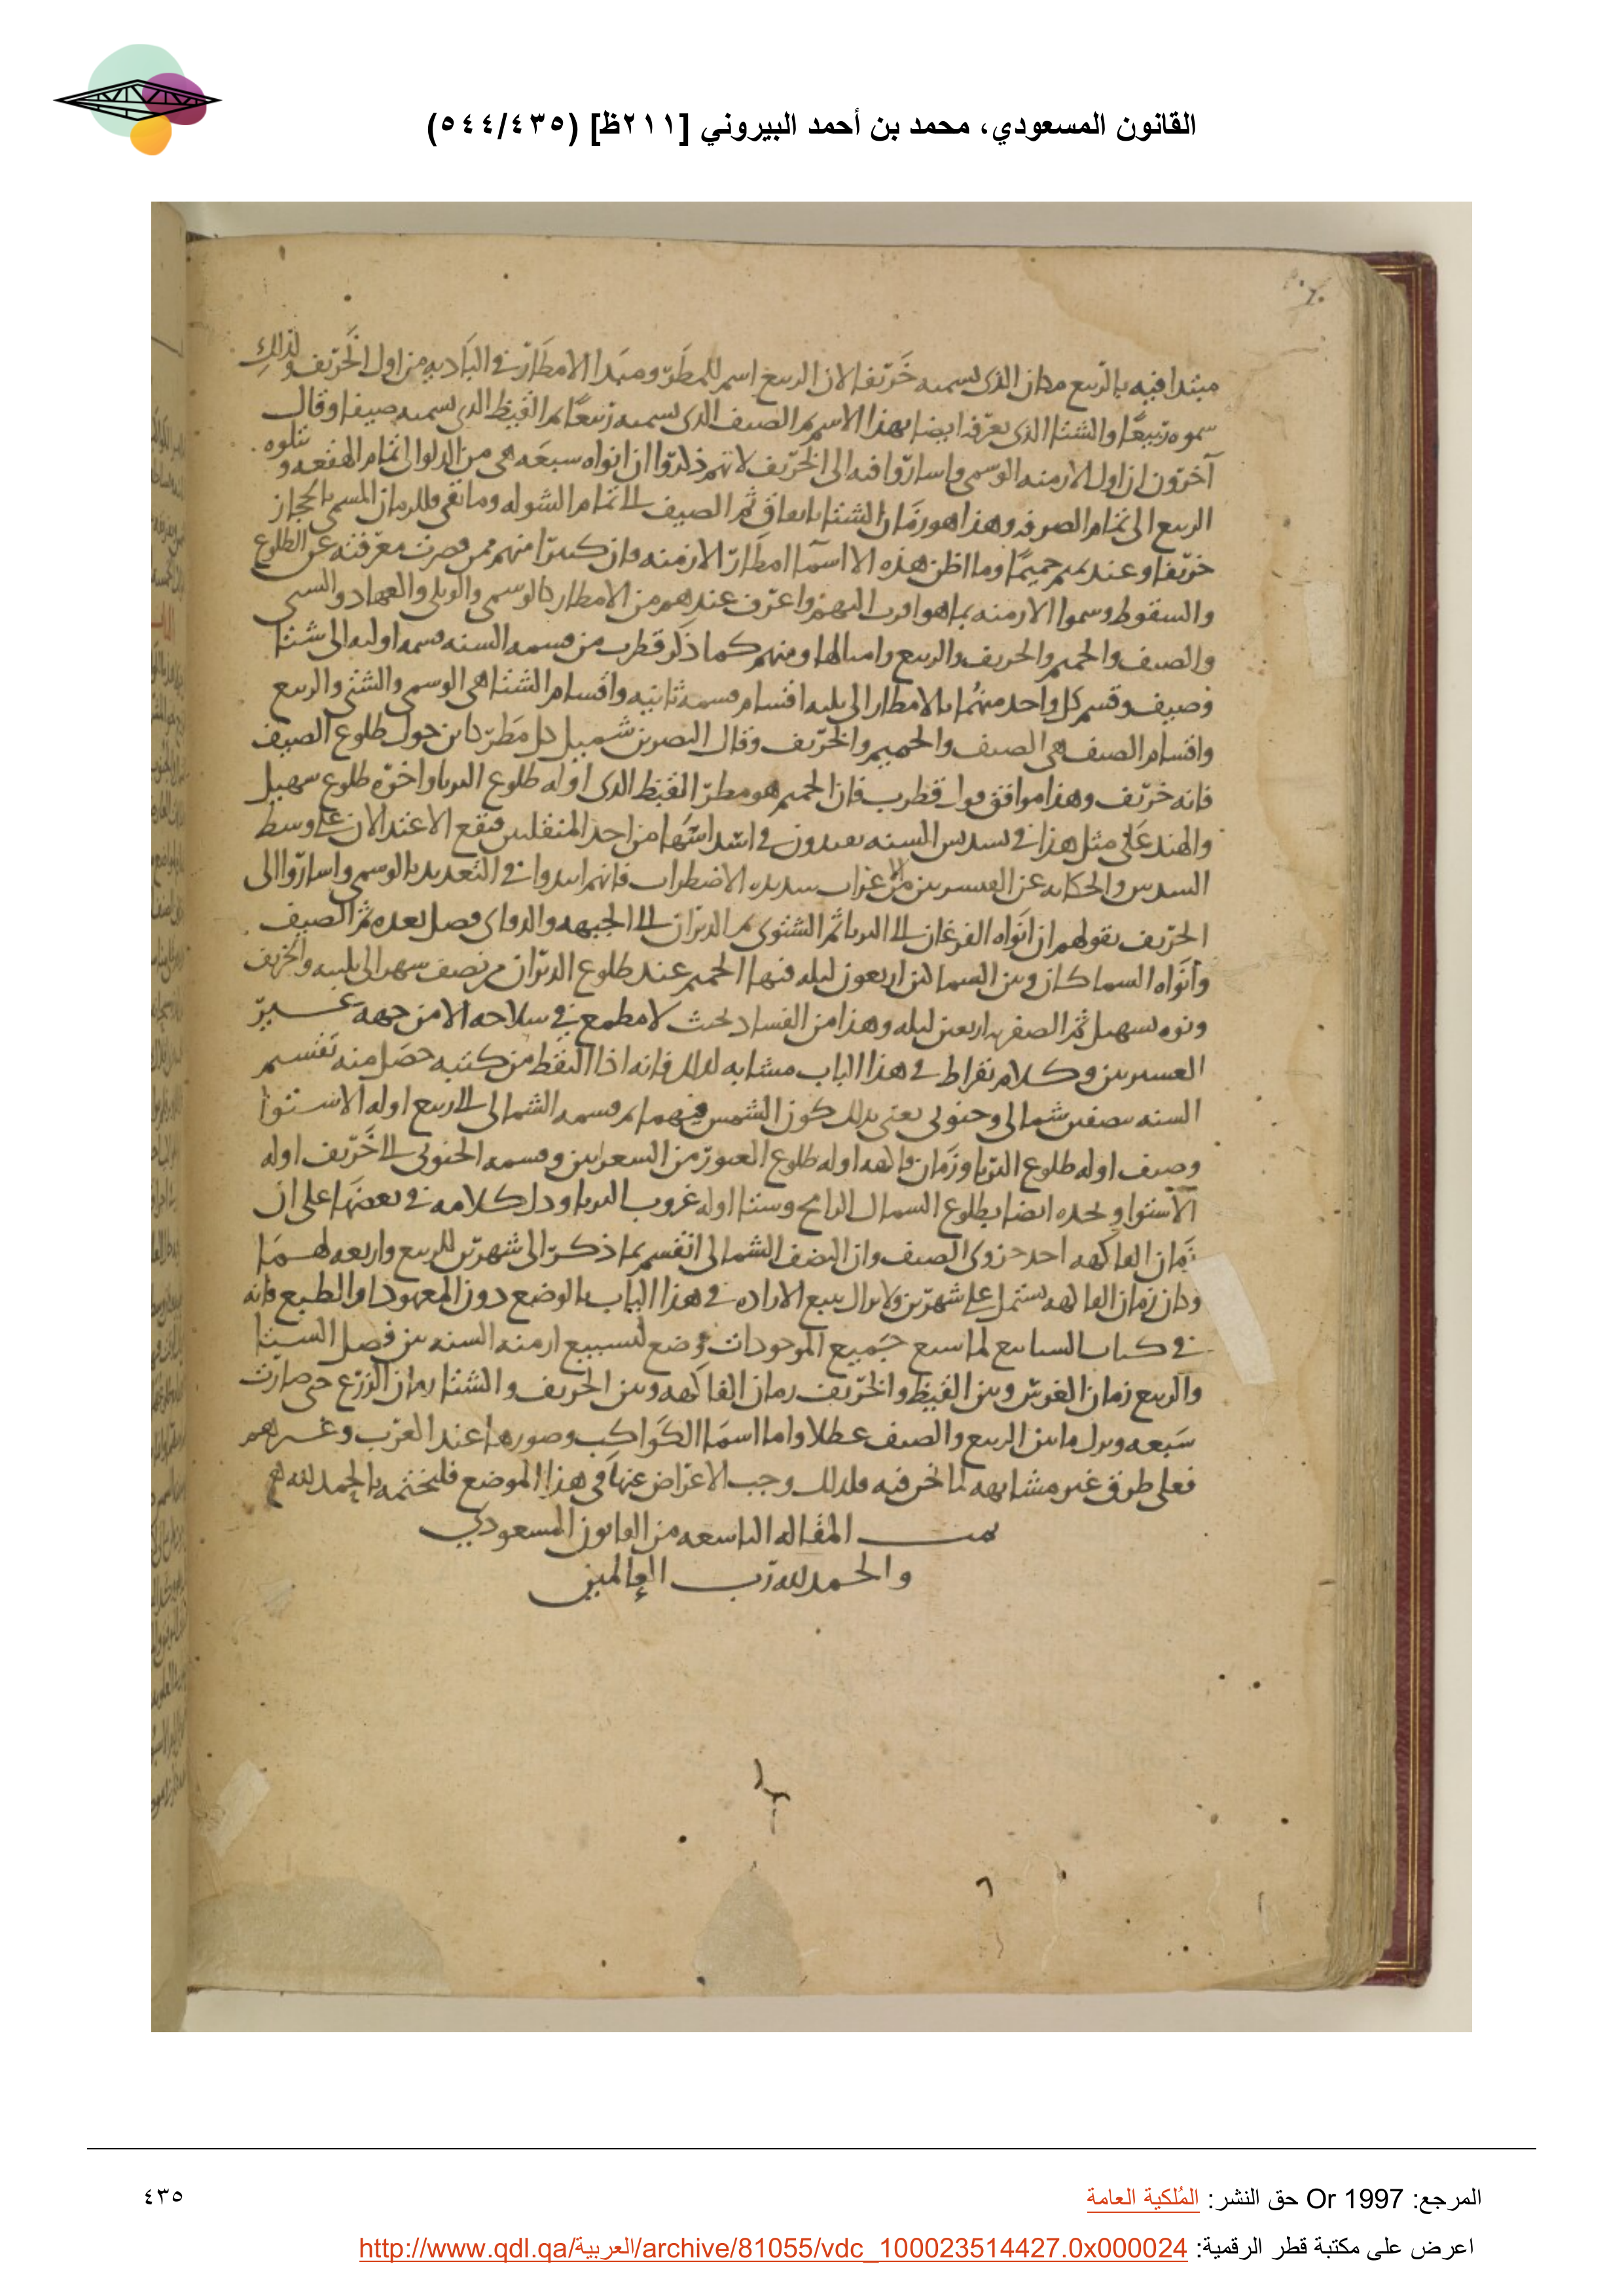 القانون المسعودي، محمد بن أحمد البيروني [٢١١ظ] (٥٤٤/٤٣٥)
مبتدا فيه بالربيع مكان الذى نسميه خريفا لان الربيع اسم للمطر ومبدا الامطار فى البادية من اول الخريف ولذلك
سموه ربيعا والشتا الذى نعرفه ايضا بهذا الاسم ثم الصيف الذى نسميه ربيعا ثم القيظ الذى نسميه صيفا وقال
آخرون ان اول الازمنه الوسمى واساروا فيه الى الخريف لانهم ذكروا ان انواه سبعه هى من الدلو الى تمام الهقعه و تتلوه
الربيع الى تمام الصرفه وهذا هو زمان الشتا باتفاق ثم الصيف الى تمام الشوله وما بقى فللزمان المسمى بالحجاز
خريفا وعند تميم حميما وما اظن هذه الا اسما امطار الازمنه فان كثيرا منهم ممن قصرت معرفته عن الطلوع
والسقوط وسموا الازمنه بما هو اقرب اليهم واعرف عندهم من الامطار كالوسمى والولى والعهاد و
والصيف والحميم والخريف والربيع وامثالها ومنهم كما ذكر قطرب من قسمه السنه قسمه اوليه الى شتا
وصيف وقسم كل واحد منهما بالامطار الى ثلثه اقسام قسمه ثانيه واقسام الشتا هى الوسمى والشتى والربيع
واقسام الصيف هى الصيف والحميم والخريف وقال النضر بن شميل كل مطر كاين حول طلوع الصيف
فانه خريف وهذا موافق قول قطرب فان الحميم هو مطر القيظ الذى اوله طلوع الثريا واخره طلوع سهيل
والهند على مثل هذا فى تسديس السنه يعدون فى ابتدائها من احد المنقلبين فيقع الاعتدالان على وسط
السدس والحكايه عن من الاعراب شديده الاضطراب فانهم ابتدوا فى التعديد بالوسمى واساروا الى
الخريف بقولهم ان انواه الفرغان الى الثريا ثم الشتوى ثم الدبران الى الجبهه و فصل بعده ثم الصيف
وانواه السماكان وبين السماكين اربعون ليله فيها الحميم عند طلوع الدبران من نصف شهر الى ثلثيه والخريف
ونوه بسهيل ثم الصفريه اربعين ليله وهذا من الفساد بحيث لا مطمع فى صلاحه الا من جهه غير
وكلام بقراط فى هذا الباب مشابه لذلك فانه اذا التقط من كتبه حصل منه تقسيم
السنه بنصفين شمالى وجنوبى يعنى بذلك كون الشمس فيهما ثم قسمه الشمالى الى ربيع اوله الاستوا
وصيف اوله طلوع الثريا وزمان فاكهه اوله طلوع العبور من الشعريين وقسمه الجنوبى الى خريف اوله
الاستوا ويحده ايضا بطلوع السماك الرامح وشتا اوله غروب الثريا ودل كلامه فى بعضها على ان
زمان الفاكهه احد جزوى الصيف وان النصف الشمالى انقسم بما ذكر الى شهرين للربيع واربعه لهما
وكان زمان الفاكهه يشتمل على شهرين ولا يزال يتبع الاراده فى هذا الباب بالوضع دون المعهود او الطبع فانه
فى كتاب السابيع لما سبع جميع الموجودات وضع لتسبيع ازمنه السنه بين فصل الشتا
والربيع زمان الغرس وبين القيظ والخريف زمان الفاكهه وبين الخريف والشتا زمان الزرع حتى صارت
سبعه وترك ما بين الربيع والصيف عطلا واما اسما الكواكب وصورها عند العرب وغيرهم
فعلى طرق غير مشابهه لما نحن فيه فلذلك وجب الاعراض عنها فى هذا الموضع فليختمه بالحمد لله
تمت المقاله التاسعه من القانون المسعودي
والحمد لله رب العالمين
المرجع: Or 1997 حق النشر: المُلكية العامة
٤٣٥
اعرض على مكتبة قطر الرقمية: http://www.qdl.qa/العربية/archive/81055/vdc_100023514427.0x000024